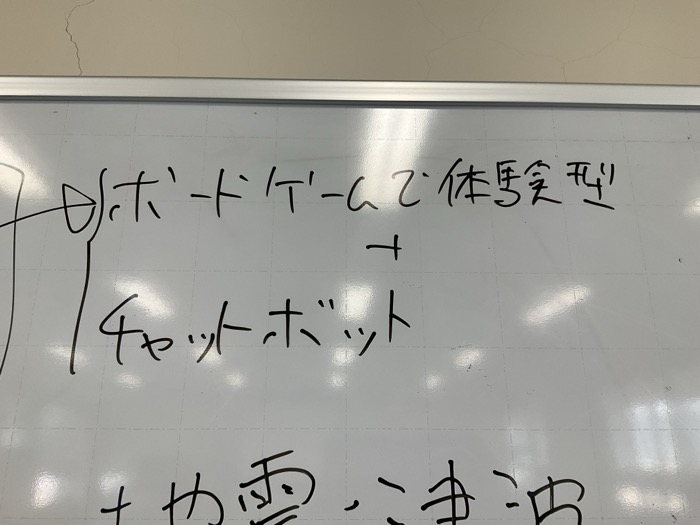 ボードゲームで体験型
+
チャットボット
地震・津波